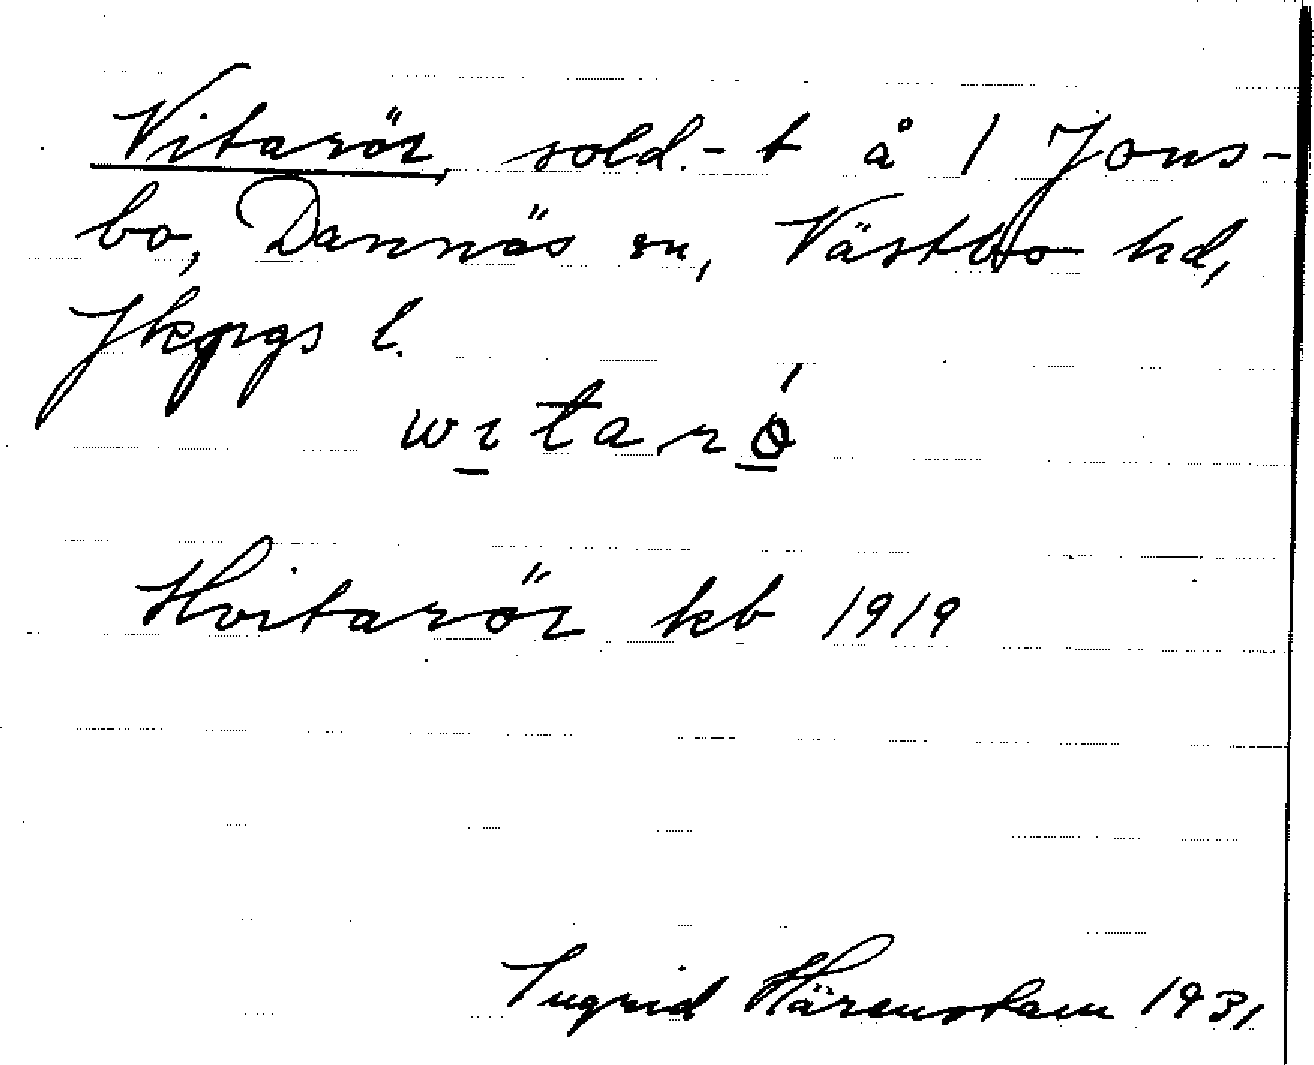 Vitarör, sold.-t å 1 Jons-
bo, Dannäs sn, Västbo hd,
Jkpgs l.
witarǿ
Hvitarör kb 1919
Ingrid Härenstam 1931